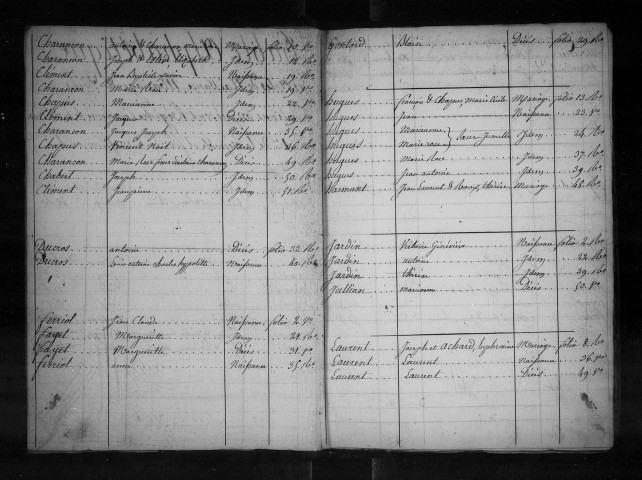 Charançon antoine & charançon marie Mariage folio 10. Vo.
Charançon Joseph Idem 12. Ro.
Clément Jean baptiste Naissance 19. Ro.
Charançon Marie Rose Idem 19. Vo.
Chapus Marianne Idem 22. Vo.
Clément Jacques Décès 29. Vo.
Charançon Jacques Joseph Naissance 35. Vo.
Chapus Vincent Noël Idem 36. Ro.
Charançon Marie Rose Décès 49. Ro.
Chabert Joseph Idem 50. Ro.
Clément Idem 51. Ro.
Ducros antoine Décès folio 32. Ro.
Ducros Louis antoine charles hypolitte Naissance 40. Ro.
ferréol Jean Claude Naissance folio 2. Vo.
fayet Marguerite Idem 21. Ro.
fayet Marguerite Décès 31. Vo.
ferréol anne Naissance 35. Ro.
Gontard Blaise Décès folio 29. Ro.
hugues françois & Chapus Marie Mariage folio 13. Ro.
hugues Jean Naissance 23. Vo.
hugues Marianne
hugues Marie rose } Sœur Jumelle Idem 24. Ro.
hugues Marie Rose Idem 37. Ro.
hugues Jean antoine Idem 39. Ro.
Jean Laurent & Roux, thérèse Mariage 45. Ro.
Jardin Victoire Geneviève Naissance folio 2. Ro.
Jardin antoine Idem 22. Ro.
Jardin thérèse Idem 39. Ro.
Jullian marianne Décès 50. Vo.
Laurent Joseph et Achard, Mariage folio 8. Ro.
Laurent Laurent Naissance 36. Vo.
Laurent Laurent Décès 49. Vo.